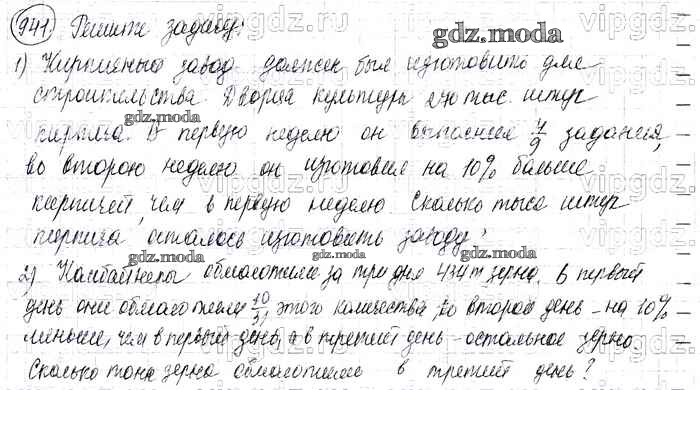 941 Решите задачу:
1) Кирпичный завод должен был изготовить для
строительства Дворца культуры 270 тыс. штук
кирпича. В первую неделю он выполнил 4/9 задания,
во второю неделю он изготовил на 10% больше
кирпичей, чем в первую неделю Сколько тыся штук
кирпича осталось изготовить заводу?
2) Комбайнеры обмолотили за три дня 434 т зерна. В первый
день они обмолотили 10/31 этого количества, во второй день - на 10%
меньше, чем в первый день, а в третий день - остальное зерно.
Сколько тонн зерна обмолотили в третий день?
gdz.moda
gdz.moda
gdz.moda
gdz.moda
gdz.moda
vipgdz.net
vipgdz.net